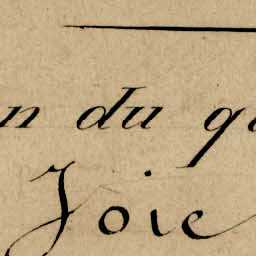 n du qu
Joie